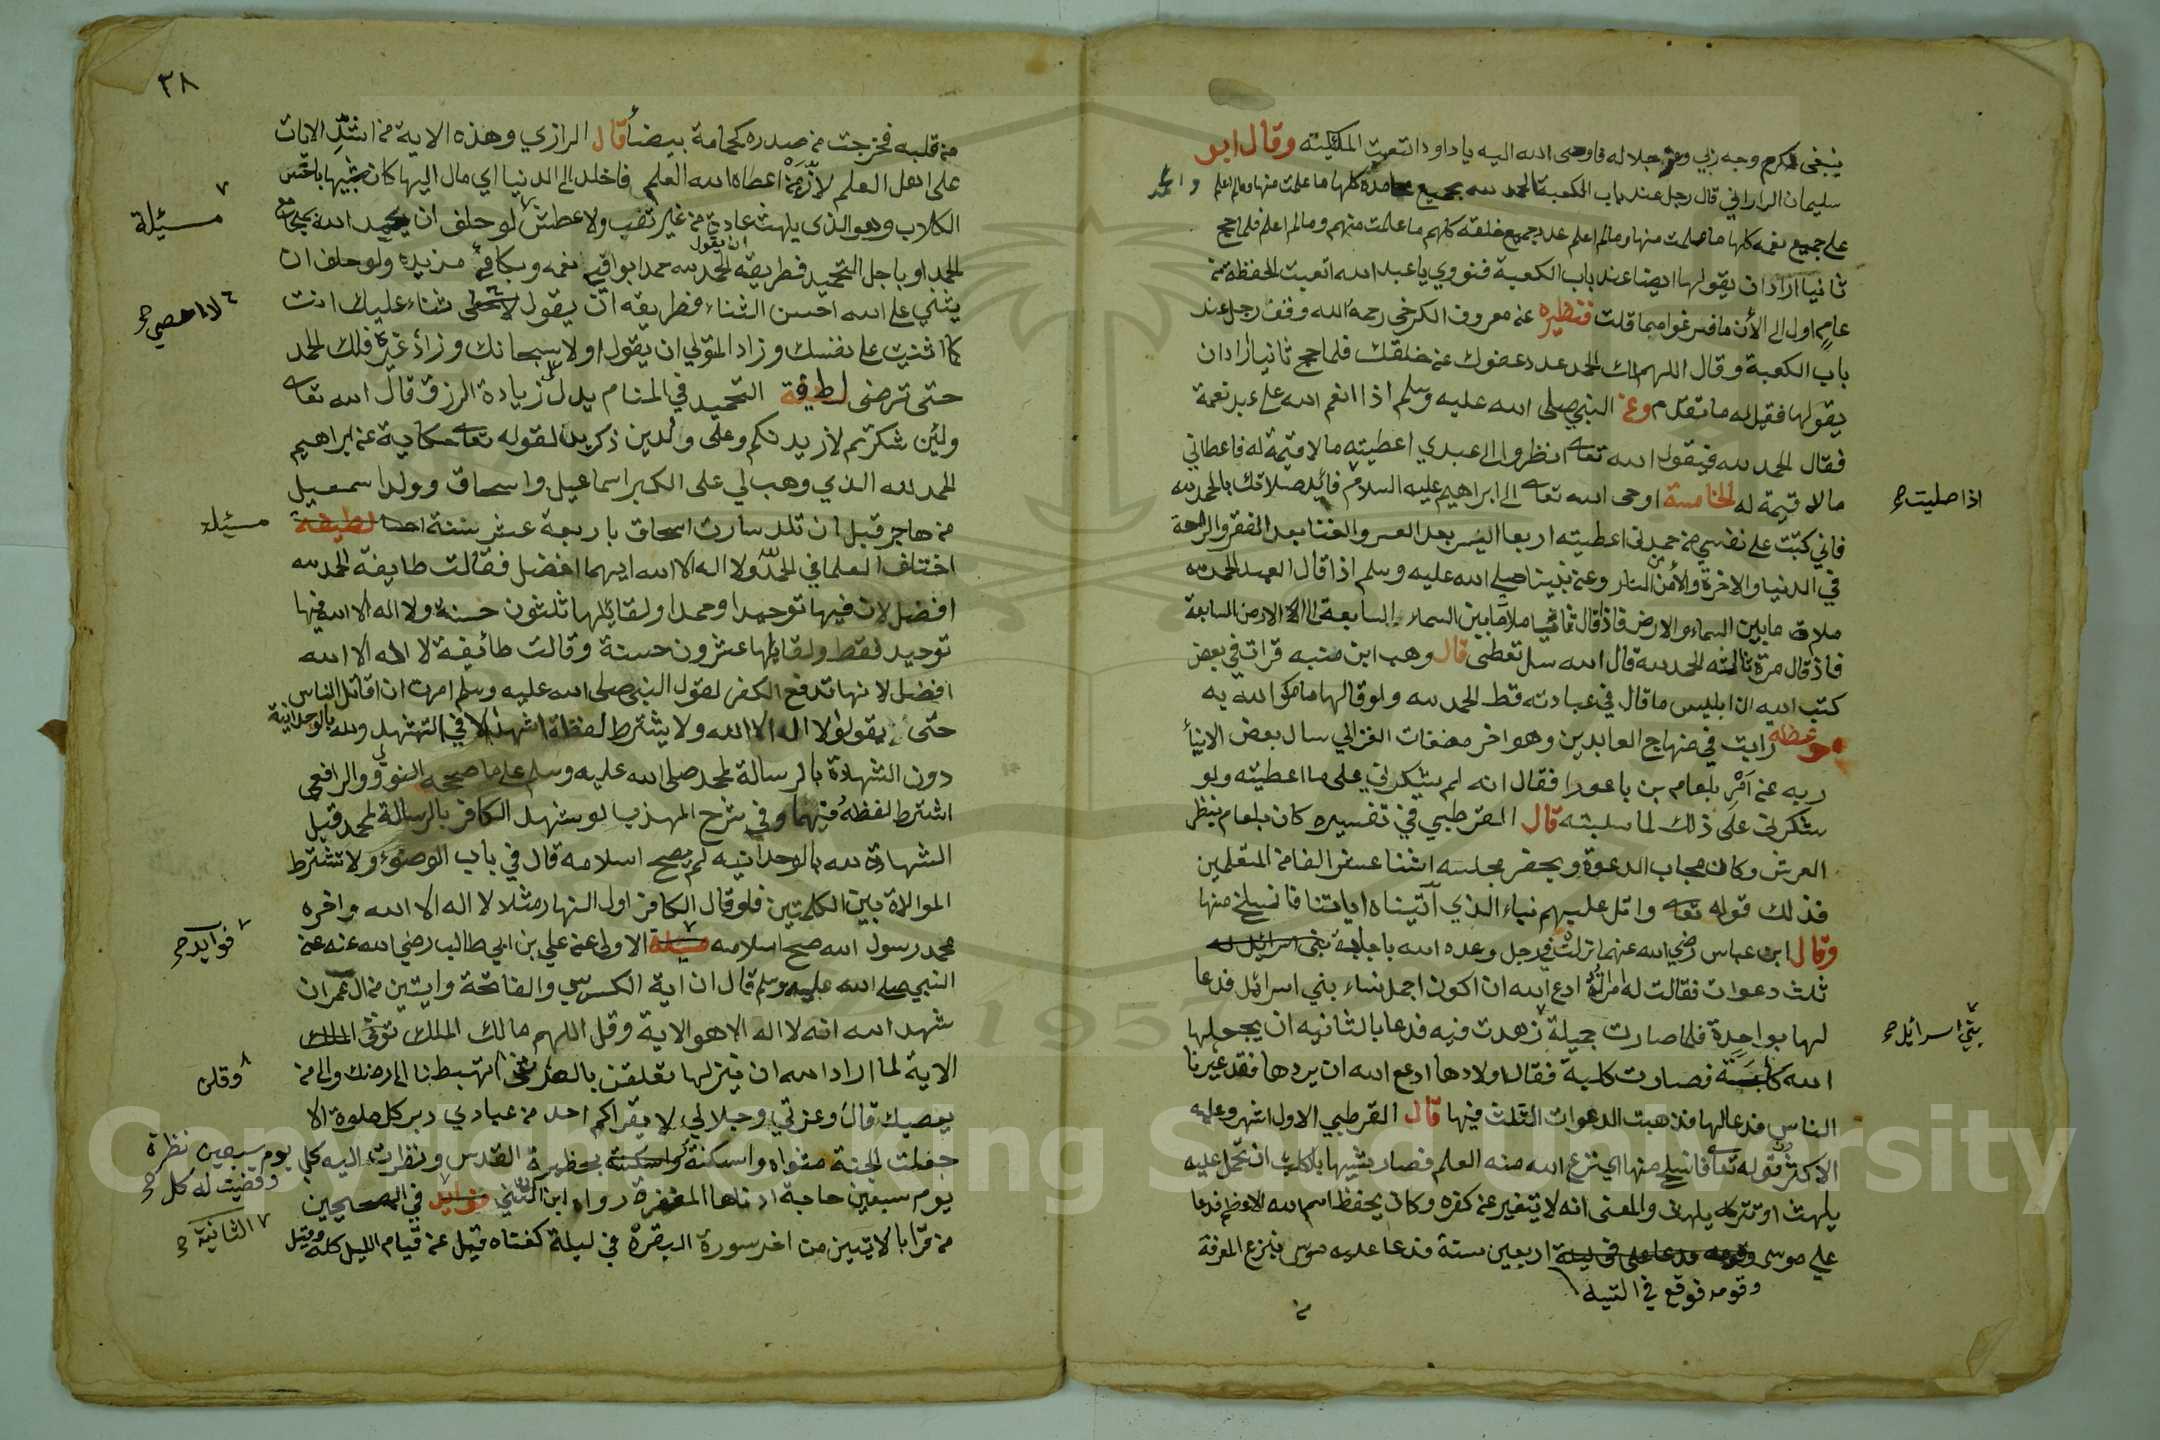 ينبغى لكرم وجه ربي وعز جلاله فاوحى الله اليه يا داود اتعبت الملائكته وقال ابو
سليمان الداراني قال رجل عند باب الكعبة الحمد لله بجميع محامده كلها ما علمت منها وما لم اعلم
على جميع نعمه كلها ما علمت منها وما لم اعلم عدد جميع خلقه كلهم ما علمت منهم وما لم اعلم فلما حج
ثانيا اراد ان يقولها ايضا عند باب الكعبة فنودي يا عبد الله اتعبت الحفظة من
عام اول الى الأن ما فرغوا مما قلت فنظيره عن معروف الكرخي رحمه الله وقف رجل عند
باب الكعبة وقال اللهم لك الحمد عدد عفوك عن خلقك فلما حج ثانيا اراد ان
يقولها فقيل له ما تقدم وعن النبي صلى الله عليه وسلم اذا انعم الله على عبد نعمة
فقال الحمد لله فيقول الله تعالى انظروا الى عبدي اعطيته ما لا قيمة له فاعطاني
ما لا قيمة له الخامسة اوحى الله تعالى الى ابراهيم عليه السلام فابد صلاتك بالحمد لله
اذا صليت صح
فاني كتبت على نفسي من حمدني اعطيته اربعا اليسر بعد العسر والغنا بعد الفقر والراحة
في الدنيا والاخرة والأمن من النار وعن نبينا صلى الله عليه وسلم اذا قال العبد الحمد لله
ملات ما بين السماء والارض فاذا قال ثانيا ملأ ما بين السماء السابعة الى الارض السابعة
فاذ قال مرة ثالثه الحمد لله قال الله سل تعطى قال وهب ابن منبه قرات في بعض
كتب الله ان ابليس ما قال في عبادته قط الحمد لله ولو قالها ما مكر الله به
موعظة رايت في منهاج العابدين وهو اخر مصنفات الغزالي سال بعض الانبياء
ربه عن امر بلعام بن باعورا فقال انه لم يشكرني على ما اعطيته ولو
شكرني على ذلك لما سلبته قال القرطبي في تفسيره كان بلعام ينظر
العرش وكان مجاب الدعوة ويحضر مجلسه اثنا عشر الفا من المتعلمين
فذلك قوله تعالى واتل عليهم نباء الذي آتيناه اياتنا فانسلخ منها
وقال ابن عباس رضي الله عنهما نزلت في رجل وعده الله باجابة بنى اسرائل له
ثلث دعوات فقالت له امراة ادع الله ان اكون اجمل نساء بني اسرائل فدعا
لها بواحدة فلما صارت جميلة زهدت فيه فدعا بالثانيه ان يجعلها
بني اسرائل صح
الله كلبة فصارت كلبة فقال اولادها ادع الله ان يردها فقد عيرنا
الناس فدعا لها فذهبت الدعوات الثلث فيها قال القرطبي الاول اشهر وعليه
الاكثرون قوله تعالى فانسلخ منها اي نزع الله منه العلم فصار يشبها بالكلب ان تحمل عليه
يلهث او تتركه يلهث والمعنى انه لا يتغير عن كفره وكان يحفظ اسم الله الاعظم فدعا
على موسى اربعين سنة فدعا عليه موسى بنزع المعرفة
وقومه فوقع في التيه
من
٣٨
من قلبه فخرجت من صدره كحمامة بيضأ قال الرازي وهذه الاية من اشد الايات
على اهل العلم لأن من اعطاه الله العلم فاخلد الى الدنيا اي مال اليها كان شبيها باخس
الكلاب وهو الذى يلهث عادة من غير تعب ولا عطش لو حلف ان يحمد الله بمجامع
مسئيلة
الحمد او باجل التحميد فطريقه ان يقول الحمد لله حمدا يوافي نعمه ويكافئ مزيده ولو حلف ان
يثني على الله احسن الثناء فطريقه ان يقول لا احصي ثناء عليك انت
لا احصي صح
كما اثنيت على نفسك وزاد المتولي ان يقول اولا سبحانك وزاد غيره فلك الحمد
حتى ترضى لطيفة التحميد في المنام يدل على زيادة الرزق قال الله تعالى
ولئن شكرتم لازيدنكم وعلى ولدين ذكرين لقوله تعالى حكاية عن ابراهيم
الحمد لله الذي وهب لي على الكبر اسماعيل واسحاق وولد اسمعيل
من هاجر قبل ان تلد سارت اسحاق باربعة عشر سنة لطيفة
مسئيلة
اختلف العلما في الحمد لله ولا اله الا الله ايهما افضل فقالت طايفة الحمد لله
افضل لان فيها توحيدا وحمدا ولقائلها ثلثون حسنة ولا اله الا الله فيها
توحيد فقط ولقائلها عشرون حسنة وقالت طائفة لا اله الا الله
افضل لانها تدفع الكفر لقول النبي صلى الله عليه وسلم امرت ان اقاتل الناس
حتى يقولوا لا اله الا الله ولا يشترط لفظة اشهد الا في التشهد ولله بالوحدانية
دون الشهادة بالرسالة لمحمد صلى الله عليه وسلم على ما صححه النووي والرافعى
اشترط لفظه فيهما وفي شرح المهذب لو شهد الكافر بالرسالة لمحمد قبل
الشهادة لله بالوحدانيه لم يصح اسلامه قال في باب الوضوء ولا تشترط
الموالاة بين الكلمتين فلو قال الكافر اول النهار مثلا لا اله الا الله واخره
محمد رسول الله صح اسلامه مسيلة الاولى عن علي بن ابي طالب رضي الله عنه عن
فوايد صح
النبي صلى الله عليه وسلم قال ان اية الكسرسي والفاتحة وايتين من ال عمران
شهد الله انه لا اله الا هو الاية وقل اللهم مالك الملك توتي الملك
الاية لما اراد الله ان ينزلها تعلقن بالعرش اتهبطنا الى ارضك والى من
وقلن
يعصيك قال وعزتي وجلالي لا يقراكم احد من عبادي دبر كل صلوة الا
جعلت الجنة مثواه واسكنته بحظيرة القدس ونظرت اليه كل
يوم سبعين نظرة
وقضيت له كل صح
يوم سبعين حاجة ادناها المغفرة رواه ابن السني فوايد في الصحيحين
الثانية صح
من قرا بالايتين من اخر سورة البقرة في ليلة كفتاه قيل عن قيام الليل كله وقيل
Copyright © King Saud University
1957